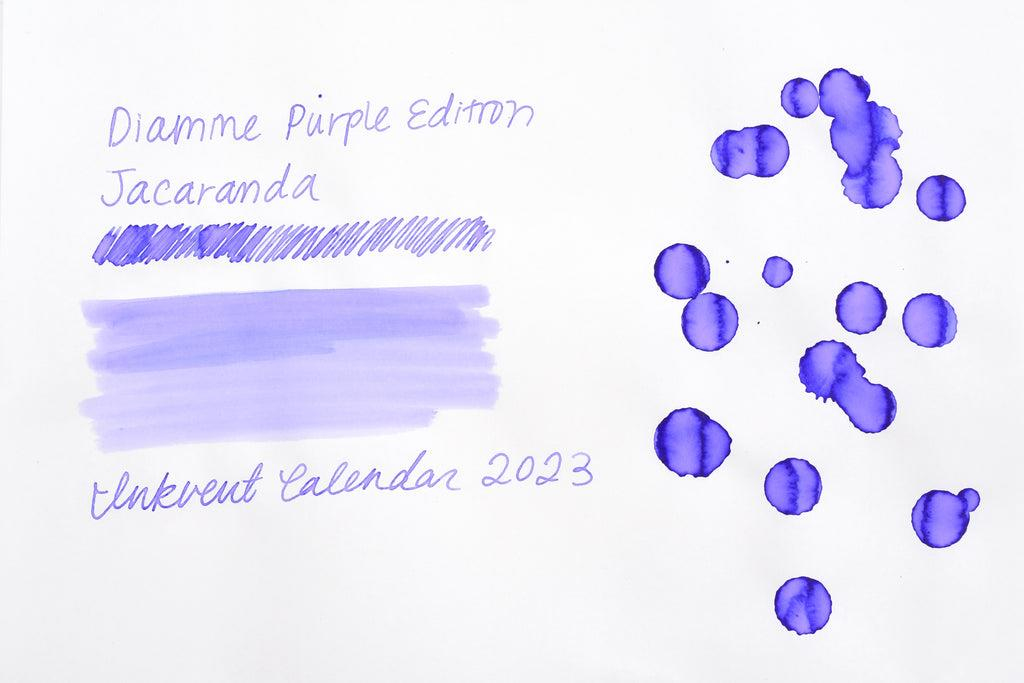 Diamine Purple Edition
Jacaranda
Inkvent Calendar 2023